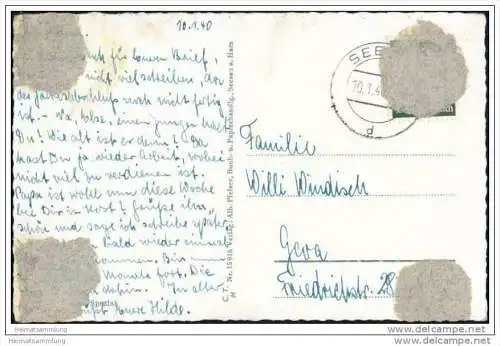 10.1.40
für Deinen Brief,
nicht viel schreiben, da
der Jahresabschluß noch nicht fertig
ist. - Na, Else, einen Jungen hast
Du! Wie alt ist er denn? Da
hast Du ja wieder Arbeit, wobei
nicht viel zu verdienen ist.
Papa ist wohl nun diese Woche
bei Dir in Hort? Grüße ihn
schön und sage ich schreibe später
Bald wieder einmal
kommen. Bin
Monate fort. Die
dahin. In alter
Eure Hilde.
C. T. Nr. 15918 Verlag: Alb. Pleber, Buch- u. Papierhandlg., Seesen a. Harz
M
SEE
10.1.4
d
Familie
Willi Windisch
Gera
Friedrichstr. 28
Heimatsammlung
http://www.heimatsammlung.de
Heimatsammlung
http://www.heimatsammlung.de